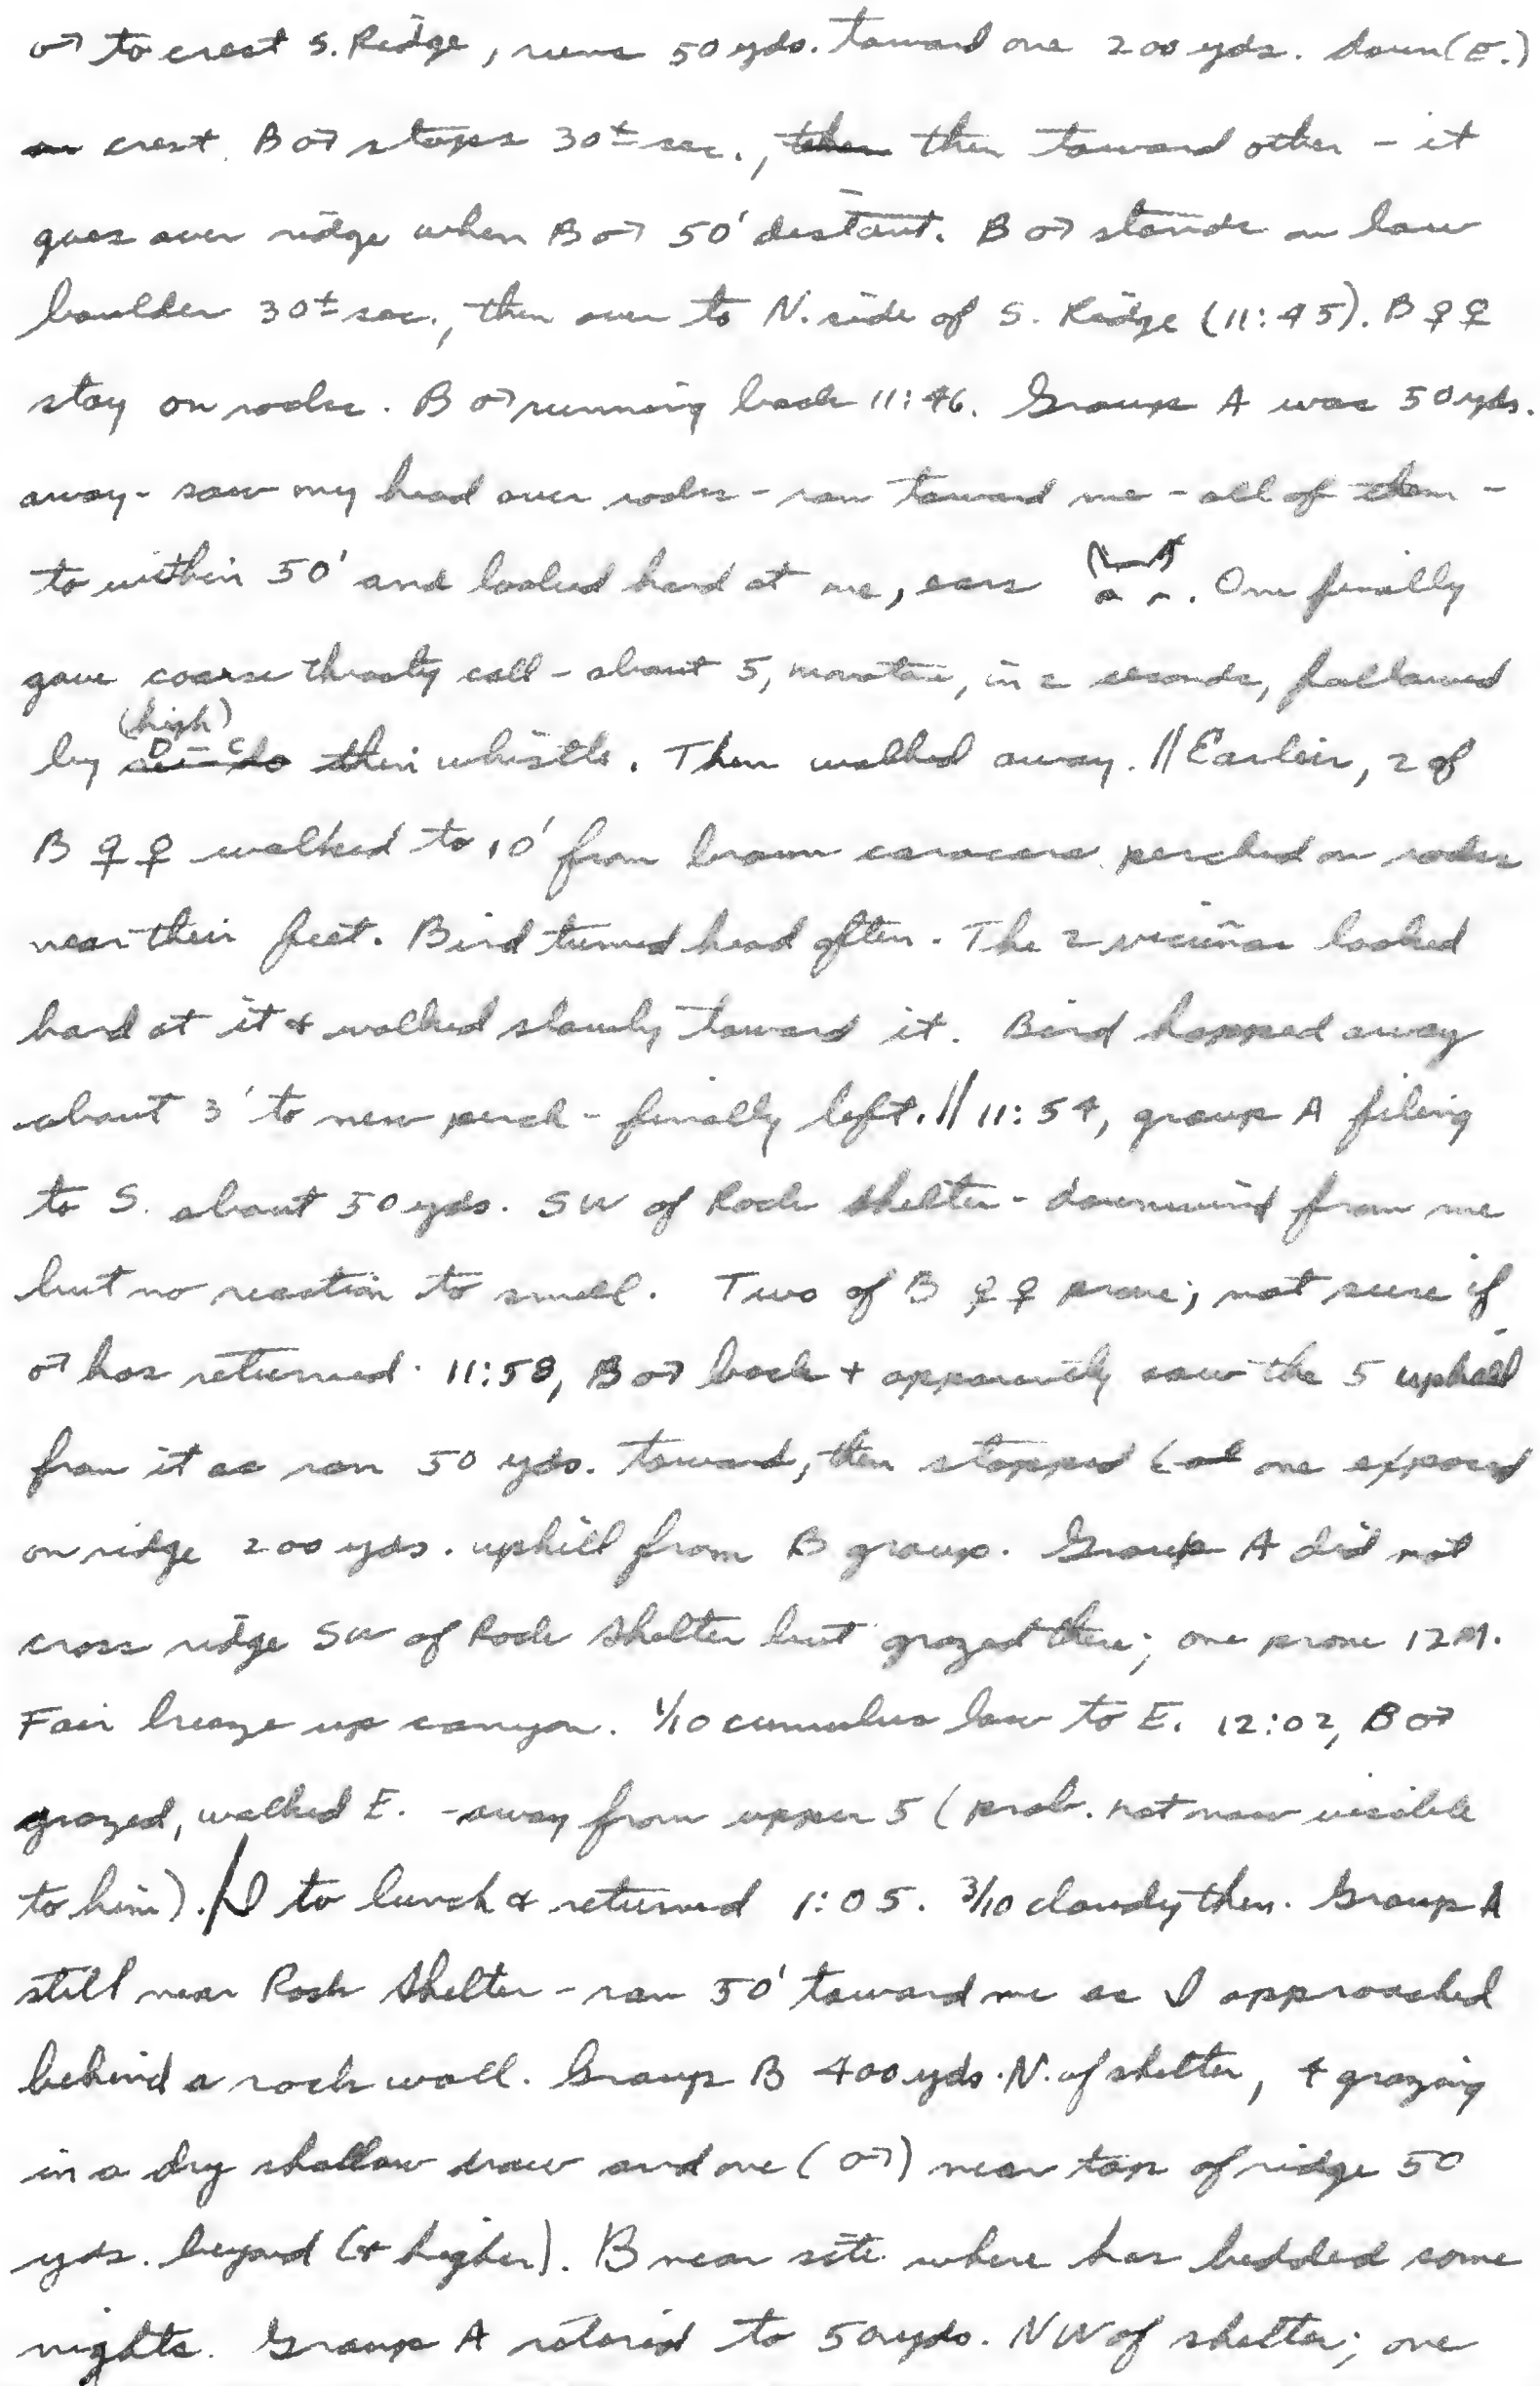 ♂ to crest S. Ridge, runs 50 yds. toward one 200 yds. down (E.)
on crest. B ♂ stops 30± sec., then then toward other - it
goes over ridge when B ♂ 50' distant. B ♂ stands on low
boulder 30± sec., then over to N. side of S. Ridge (11:45). B ♀♀
stay on rocks. B ♂ running back 11:46. Group A was 50 yds.
away - saw my head over rocks - ran toward me - all of them -
to within 50' and looked hard at me, ears . One finally
gave coarse throaty call - about 5, monotone, in 2 seconds, followed
(high)
D - C
by thin whistle. Then walked away. // Earlier, 2 of
B ♀♀ walked to 10' from brown caracara perched on rocks
near their feet. Bird turned head often. The 2 vicuñas looked
hard at it & walked slowly toward it. Bird hopped away
about 3' to new perch - finally left. // 11:54, group A filing
to S. about 50 yds. SW of Rock Shelter - downwind from me
but no reaction to smell. Two of B ♀♀ prone; not sure if
♂ has returned. 11:58, B ♂ back + apparently saw the 5 uphill
from it as ran 50 yds. toward, then stopped ( one exposed
on ridge 200 yds. uphill from B group. Group A did not
cross ridge SW of Rock Shelter but grazed there; one prone 12 M.
Fair breeze up canyon. 1/10 cumulus low to E. 12:02, B ♂
grazed, walked E. - away from upper 5 (prob. not now visible
to him). // I to lunch & returned 1:05. 3/10 cloudy then. Group A
still near Rock Shelter - ran 50' toward me as I approached
behind a rock wall. Group B 400 yds. N. of shelter, 4 grazing
in a dry shallow draw and one (♂) near top of ridge 50
yds. beyond (& higher). B near site where has bedded some
nights. Group A retired to 50 yds. NW of shelter; one